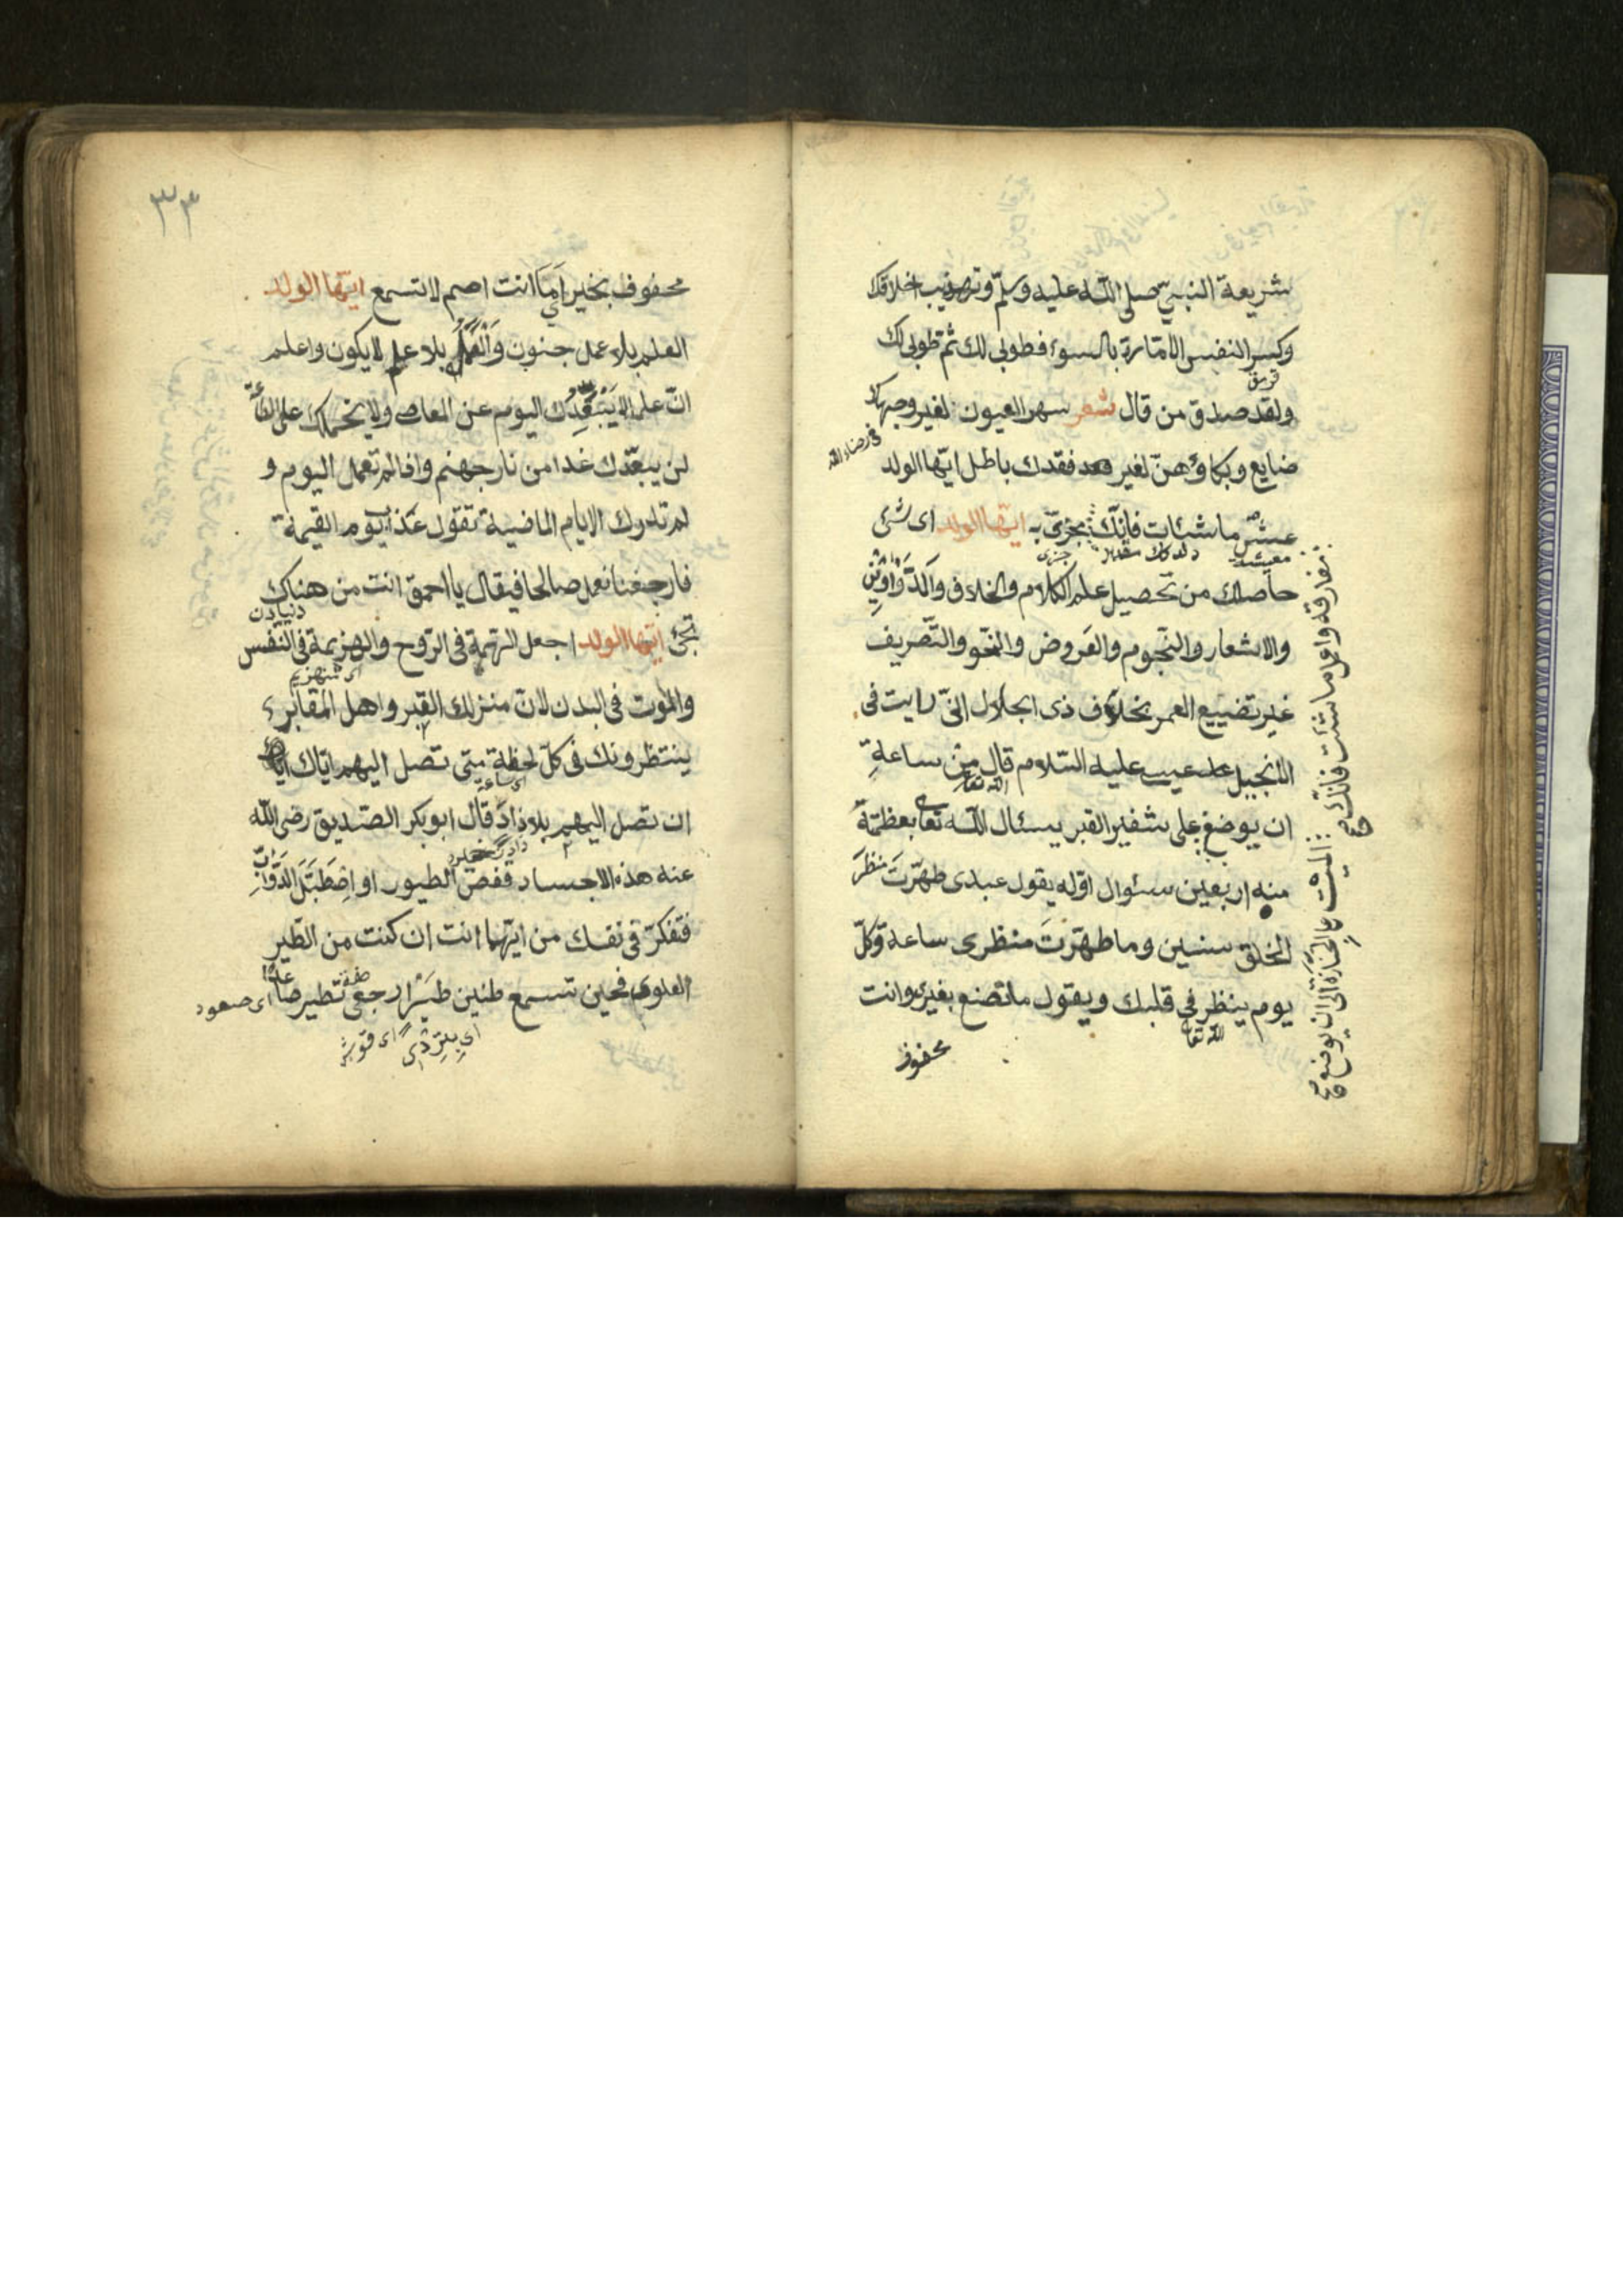 شريعة النبي صلى الله عليه وسلم وتهذيب اخلاقك
وكسر النفس الامّارة بالسوء فطوبى لك ثم طوبى لك
ولقد صدق من قال شعر سهر العيون لغير وجهك
ضايع وبكاؤهنّ لغير فقدك باطل ايّها الولد
عش ما شئت فانّك مجزىّ به ايّها الولد اى شئ
حاصلك من تحصيل علم الكلام والخلاف والدّواوين
والاشعار والنّجوم والعروض والنّحو والتّصريف
غير تضييع العمر بخلاف ذى الجلال انّى رايت فى
الانجيل عيسى عليه السّلام قال من ساعةِ
ان يوضع على شفير القبر يسئال الله تعا بعظمتهِ
منه اربعين سئوال اوّله يقول عبدى طهّرتَ منظرَ
الخلق سنين وما طهّرتَ منظرى ساعة وكلّ
يوم ينظر فى قلبك ويقول ما تصنع بغيرى وانت
الله تعا
محفوف
مفارقه واعمل ما شئت فانّك
الميّت على الجنازة الى ان يوضع
٣٣
محفوف بخيرى امَا انت اصم لا تسمع ايّها الولد
العلم بلا عمل جنون وَالْعَمَلُ بلا علم لا يكون واعلم
انّ علما لا يبعّدك اليوم عن المعاصى ولا يحملك على الطاعة
لن يبعّدك غدا من نار جهنم واذا لم تعمل اليوم و
لم تدرك الايام الماضية تقول غدا يوم القيمة
فارجعنا نعمل صالحا فيقال يا احمق انت من هناك
تجئ ايّها الولد اجعل الهمّة فى الرّوح والهزيمة فى النّفس
والموت فى البدن لانّ منزلك القبر واهل المقابر
ينتظرونك فى كلّ لحظة متى تصل اليهم ايّاك ايّاك
اى ساعة
ان تصل اليهم بلا زاد قال ابوبكر الصّديق رضى الله
عنه هذه الاجساد قفص الطيور او اصْطَبَل الدَّوابِّ
فتفكرّ فى نفسك من ايّهما انت ان كنت من الطّير
العلوى فحين تسمع طنين طَبْل ارجعى تطير صاعدًا
اى صعود